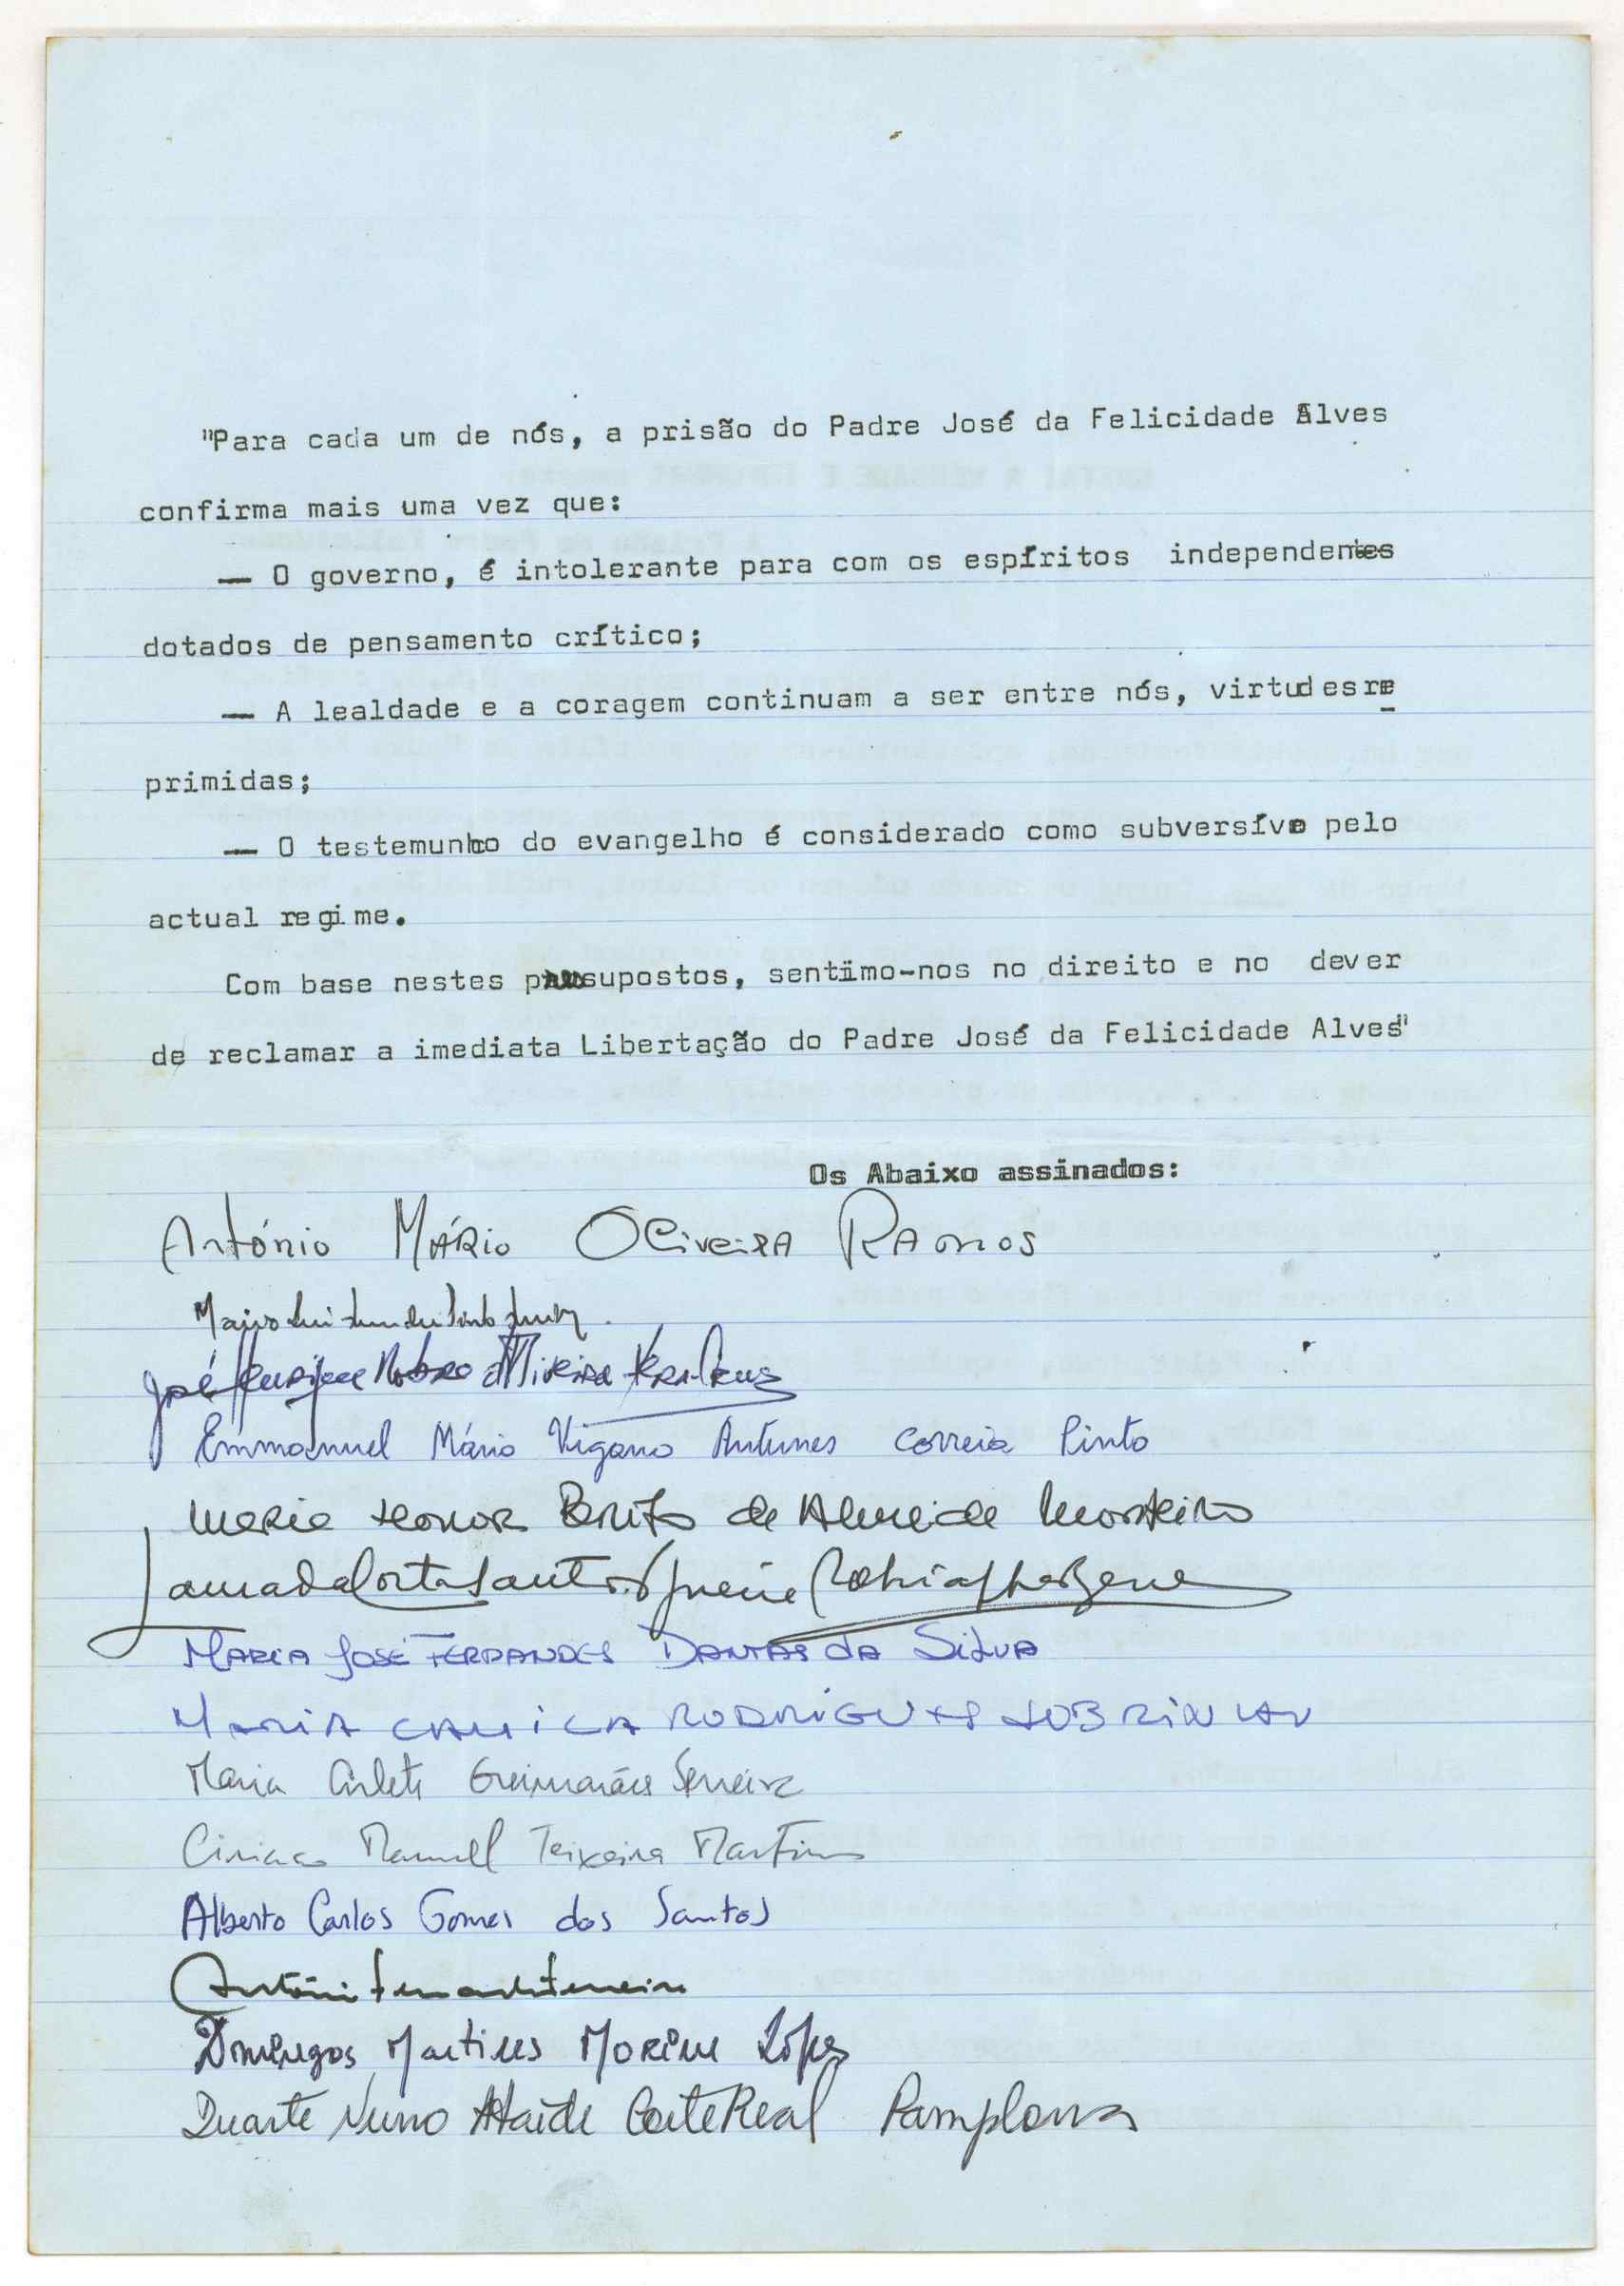 "Para cada um de nós, a prisão do Padre José da Felicidade Alves
confirma mais uma vez que:
— O governo, é intolerante para com os espíritos independentes
dotados de pensamento crítico;
— A lealdade e a coragem continuam a ser entre nós, virtudes re
primidas;
— O testemunho do evangelho é considerado como subversívo pelo
actual regime.
Com base nestes pressupostos, sentimo-nos no direito e no dever
de reclamar a imediata Libertação do Padre José da Felicidade Alves"
Os Abaixo assinados:
António Mário Oliveira Ramos
José Henrique Oliveira Vera-Cruz
Emmanuel Mário Vigano Antunes Correia Pinto
Maria Leonor Brito de Almeida Monteiro
Maria José Fernandes Dantas da Silva
MARIA CAMILA RODRIGUES
Maria Arlete Guimarães
Ciriaco Manuel Teixeira Martins
Alberto Carlos Gomes dos Santos
António
Domingos Martins Morim Lopes
Duarte Nuno Ataíde Corte Real Pamplona